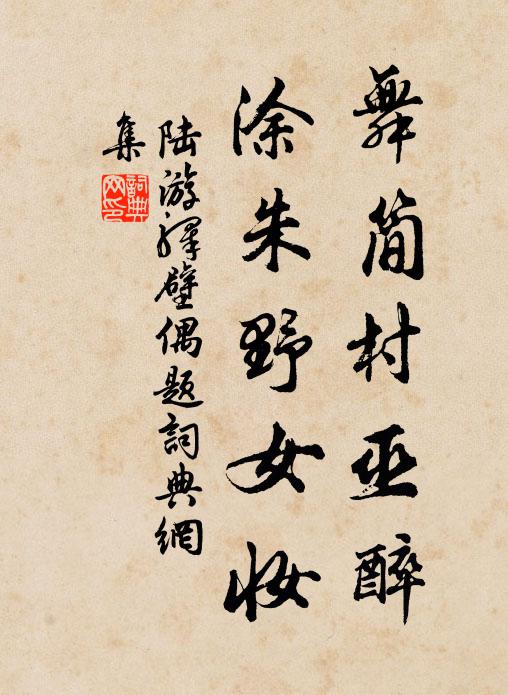 舞簡村巫醉
涂朱野女妝
陸游驛壁偶題詞典網
集
詞典網印